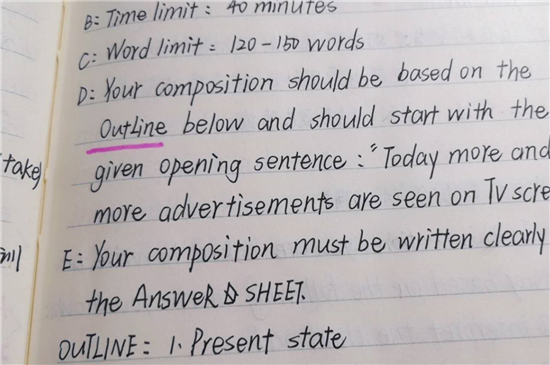 B: Time limit: 40 minutes
C: Word limit: 120-150 words
D: Your composition should be based on the
Outline below and should start with the
take)
given opening sentence: "Today more and
more advertisements are seen on TV scre
E: Your composition must be written clearly
the ANSWER SHEET.
OUTLINE: 1. Present state